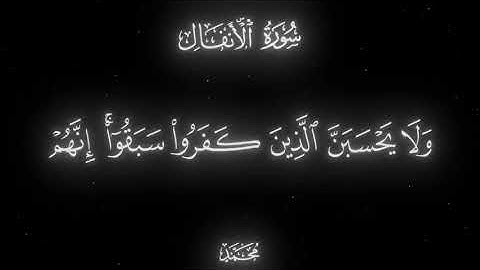 سُورَةُ ٱلْأَنفَال
وَلَا يَحْسَبَنَّ ٱلَّذِينَ كَفَرُوا۟ سَبَقُوٓا۟ ۚ إِنَّهُمْ
مُحَمَّد